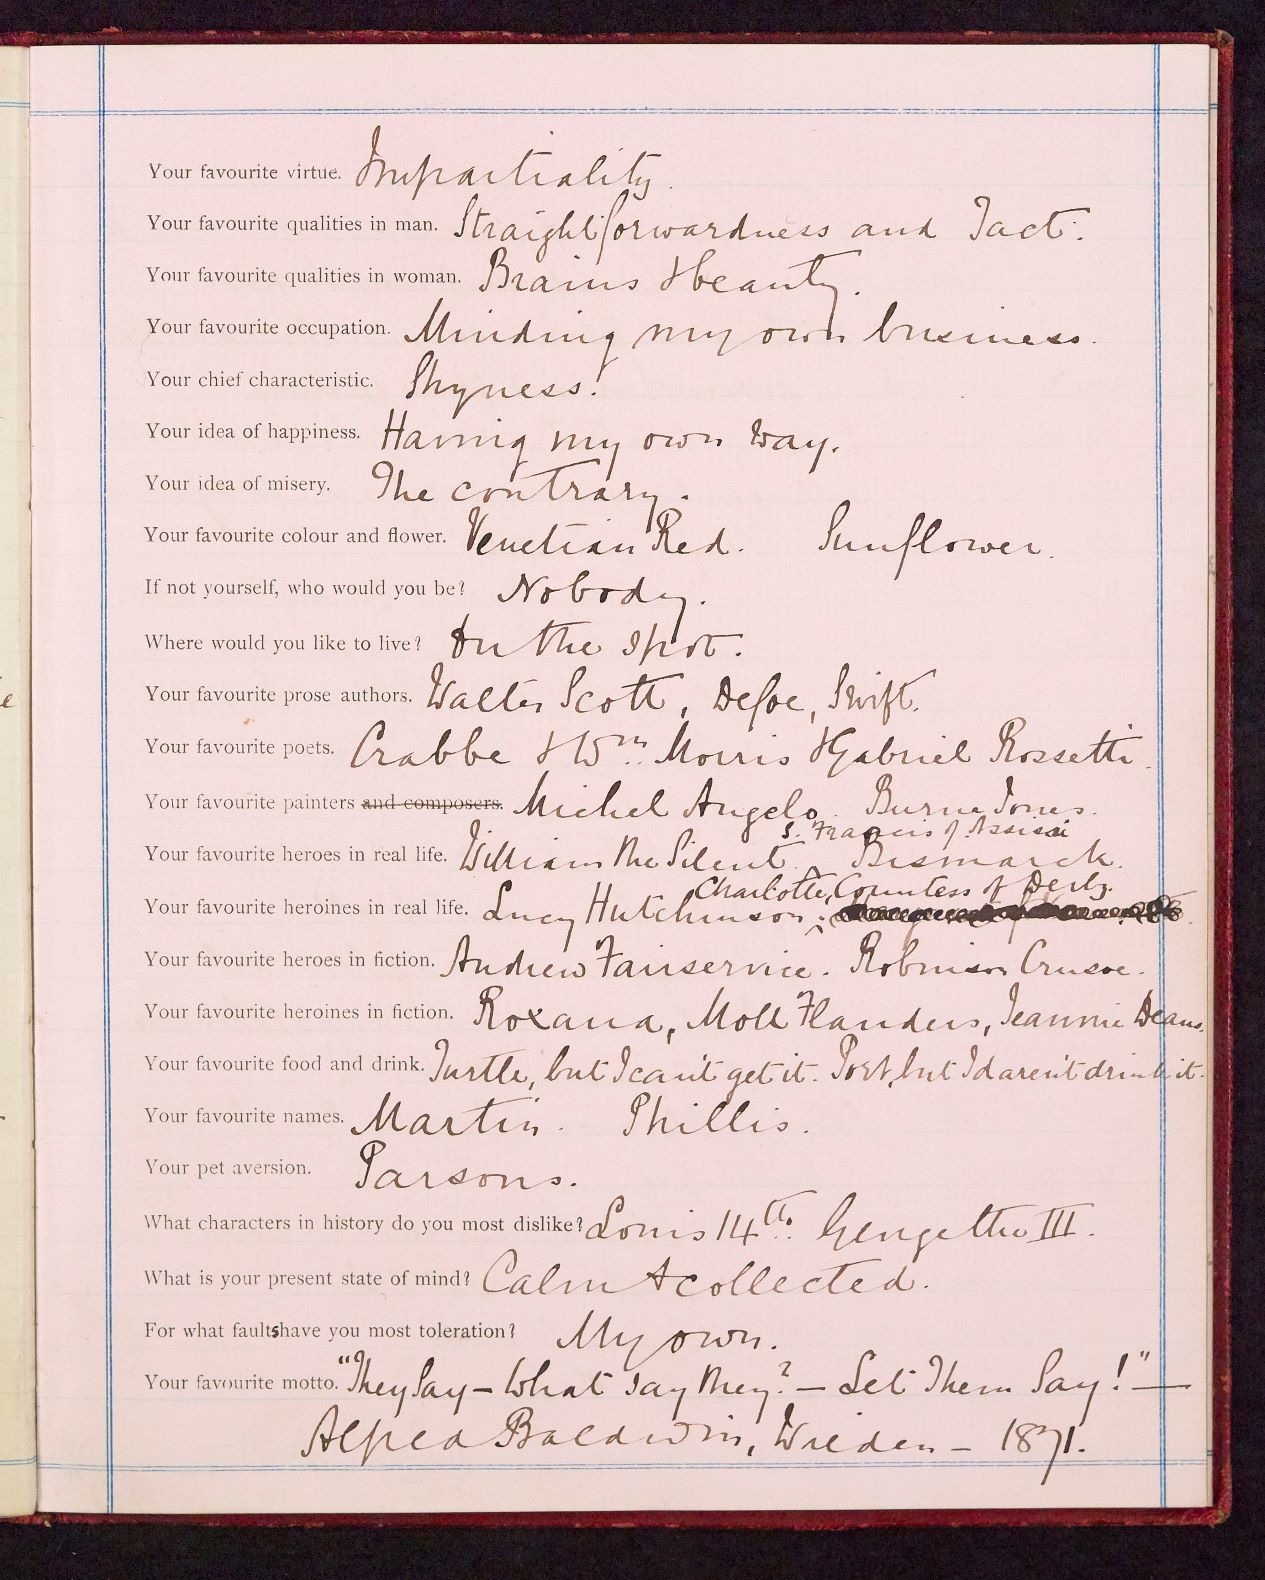 Your favourite virtue. Impartiality.
Your favourite qualities in man. Straightforwardness and Tact.
Your favourite qualities in woman. Brains & beauty.
Your favourite occupation. Minding my own business.
Your chief characteristic. Shyness.
Your idea of happiness. Having my own way.
Your idea of misery. The contrary.
Your favourite colour and flower. Venetian Red. Sunflower.
If not yourself, who would you be? Nobody.
Where would you like to live? On the spot.
Your favourite prose authors. Walter Scott, Defoe, Swift.
Your favourite poets. Crabbe & Wm. Morris & Gabriel Rossetti.
Your favourite painters and composers. Michel Angelo. Burne Jones.
S. Francis of Assisi
Your favourite heroes in real life. William the Silent. Bismarck.
Charlotte, Countess of Derby.
Your favourite heroines in real life. Lucy Hutchinson.
Your favourite heroes in fiction. Andrew Fairservice. Robinson Crusoe.
Your favourite heroines in fiction. Roxana, Moll Flanders, Jeannie Deans.
Your favourite food and drink. Turtle, but I can't get it. Port, but I daren't drink it.
Your favourite names. Martin. Phillis.
Your pet aversion. Parsons.
What characters in history do you most dislike? Louis 14th. George the III.
What is your present state of mind? Calm & collected.
For what faults have you most toleration? My own.
Your favourite motto. "They Say – What say they? – Let Them Say!" –
Alfred Baldwin, Wilden – 1871.